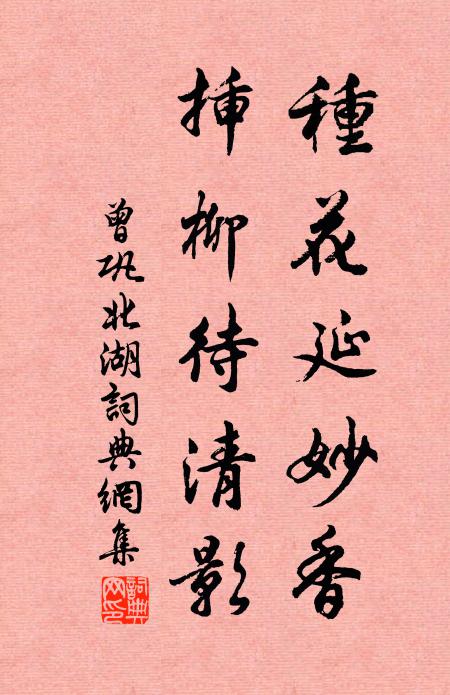 種花延妙香
挿柳待清影
曾鞏北湖詞典網集
詞典網印